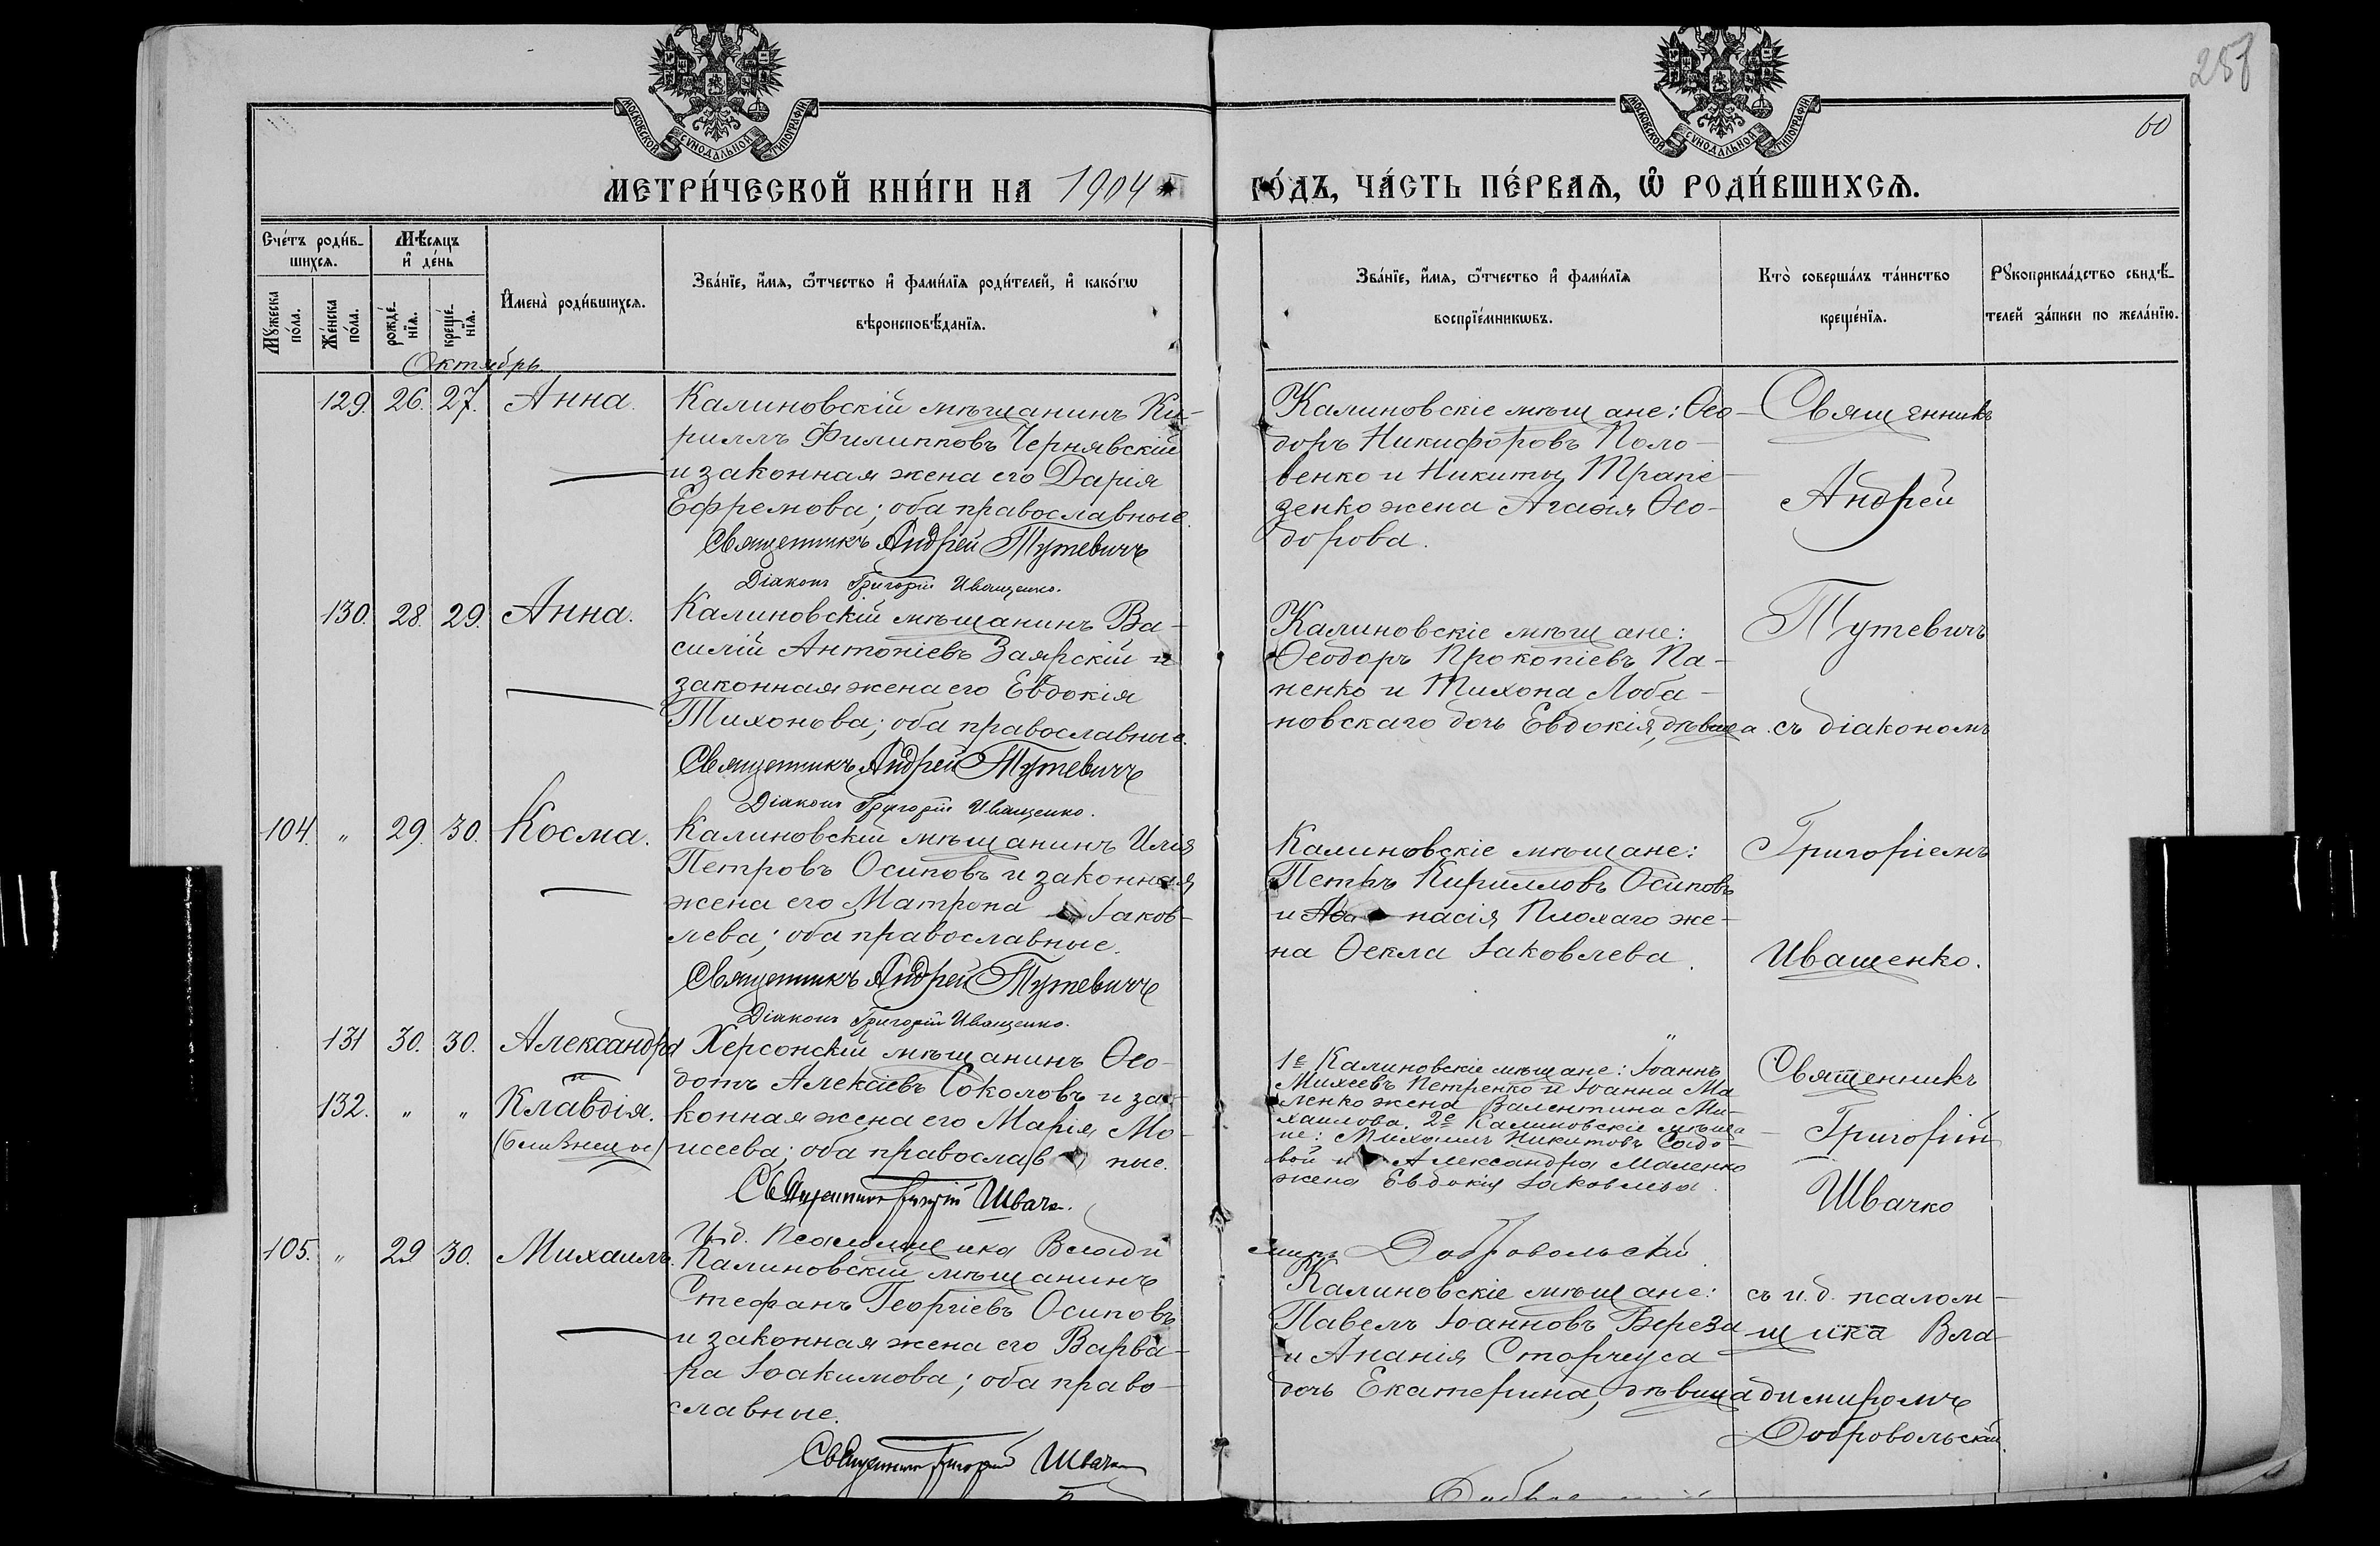 258
60
МОСКОВСКОЙ СѴНОДАЛЬНОЙ ТИПОГРАФІИ
МОСКОВСКОЙ СѴНОДАЛЬНОЙ ТИПОГРАФІИ
МЕТРИ́ЧЕСКОЙ КНИ́ГИ НА 1904
ГО́ДЪ, ЧА́СТЬ ПЕ́РВАѦ, Ѡ҆ РОДИ́ВШИХСѦ.
Сче́тъ роди́в-
шихсѧ.
Мꙋ́жеска по́ла.
Же́нска по́ла.
Мѣ́сѧцъ
и҆ де́нь
рожде́-
нїѧ.
креще́-
нїѧ.
И҆мена̀ роди́вшихсѧ.
Зва́нїе, и҆́мѧ, ѻ҆́тчество и҆ фами́лїѧ роди́телей, и҆ како́гѡ
вѣроисповѣ́данїѧ.
Зва́нїе, и҆́мѧ, ѻ҆́тчество и҆ фами́лїѧ
воспрїе́мникѡвъ.
Кто̀ соверша́лъ та́инство
креще́нїѧ.
Рꙋкоприкла́дство свидѣ́-
телей за́писи по жела́нїю.
Октябрь
129. 26. 27. Анна.
Калиновскій мѣщанинъ Ки-
риллъ Филипповъ Чернявскій
и законная жена его Дарія
Ефремова; оба православные.
Священникъ Андрей Тутевичъ
Діаконъ Григорій Иващенко.
Калиновскіе мѣщане: Ѳео-
доръ Никифоровъ Поло-
венко и Никиты Трапе-
зенко жена Агаѳія Ѳео-
дорова.
Священникъ
Андрей
130. 28. 29. Анна.
Калиновскій мѣщанинъ Ва-
силій Антоніевъ Заярскій и
законная жена его Евдокія
Тихонова; оба православные.
Священникъ Андрей Тутевичъ
Діаконъ Григорій Иващенко.
Калиновскіе мѣщане:
Ѳеодоръ Прокопіевъ Па-
ненко и Тихона Лоба-
новскаго дочь Евдокія, дѣвица.
Тутевичъ
съ діакономъ
104. " 29. 30. Косма.
Калиновскій мѣщанинъ Илія
Петровъ Осиповъ и законная
жена его Матрона Іаков-
лева; оба православные.
Священникъ Андрей Тутевичъ
Діаконъ Григорій Иващенко.
Калиновскіе мѣщане:
Петръ Кирилловъ Осиповъ
и Аѳанасія Плохаго же-
на Ѳекла Іаковлева.
Григоріемъ
Иващенко.
131 30. 30. Александра
и
132. " " Клавдія.
(близнецы)
Херсонскій мѣщанинъ Ѳео-
дотъ Алексіевъ Соколовъ и за-
конная жена его Марія Мо-
исеева; оба православные.
Священникъ Григорій Швачко.
1е Калиновскіе мѣщане: Іоаннъ
Михеевъ Петренко и Іоанна Ма
ленко жена Валентина Ми-
хаилова. 2е Калиновскіе мѣща
не: Михаилъ Никитовъ Садо-
вой и Александра Маленко
жена Евдокія Іаковлева.
Священникъ
Григорій
Швачко
И.д. Псаломщика Влади
миръ Добровольскій.
105. " 29 30. Михаилъ.
Калиновскій мѣщанинъ
Стефанъ Георгіевъ Осиповъ
и законная жена его Варва-
ра Іоакимова; оба право-
славные.
Священникъ Григорій Швачко
Калиновскіе мѣщане:
Павелъ Іоанновъ Береза
и Ананія Сторчеуса
дочь Екатерина, дѣвица
съ и.д. псалом-
щика Вла-
димиромъ
Добровольскій.